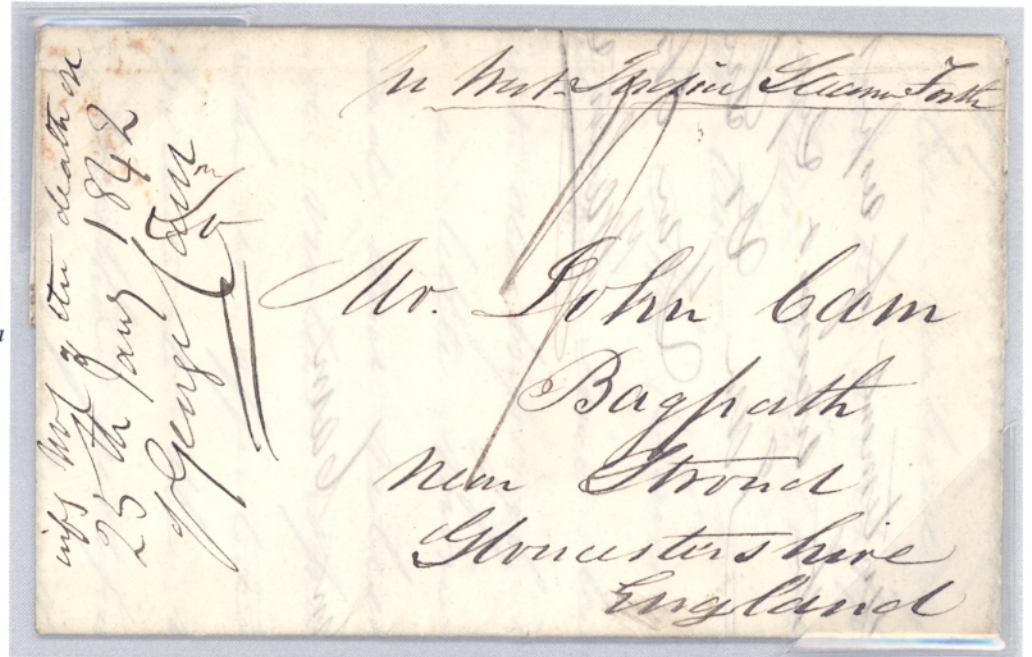 West India Steamer Forth
Mr. John Cam
Bagpath
near Stroud
Gloucestershire
England
of the death on
25th Jany 1842
George Cam